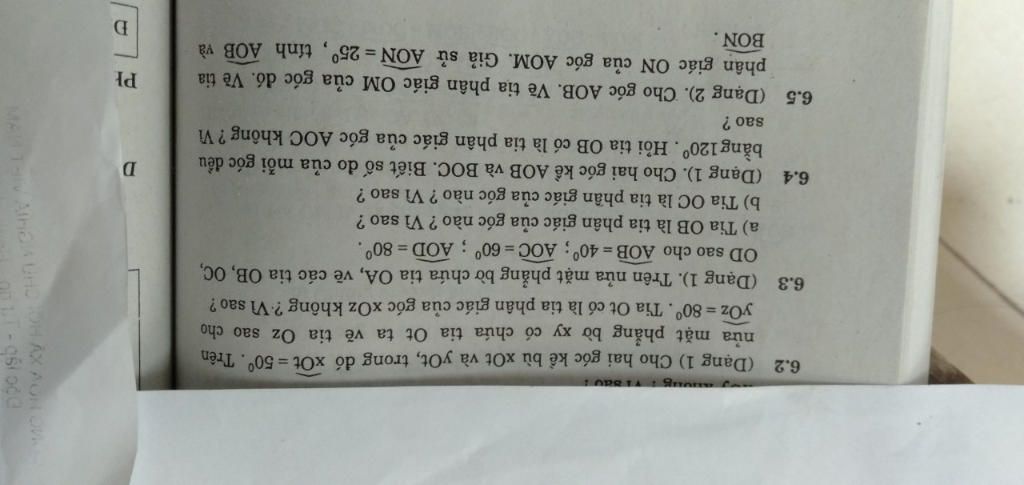 6.2 (Dạng 1) Cho hai góc kề bù xOt và yOt, trong đó xOt = 50⁰. Trên
nửa mặt phẳng bờ xy có chứa tia Ot ta vẽ tia Oz sao cho
yOz = 80⁰. Tia Ot có là tia phân giác của góc xOz không ? Vì sao ?
6.3 (Dạng 1). Trên nửa mặt phẳng bờ chứa tia OA, vẽ các tia OB, OC,
OD sao cho AOB = 40⁰; AOC = 60⁰ ; AOD = 80⁰.
a) Tia OB là tia phân giác của góc nào ? Vì sao ?
b) Tia OC là tia phân giác của góc nào ? Vì sao ?
6.4 (Dạng 1). Cho hai góc kề AOB và BOC. Biết số đo của mỗi góc đều
bằng 120⁰. Hỏi tia OB có là tia phân giác của góc AOC không ? Vì
sao ?
6.5 (Dạng 2). Cho góc AOB. Vẽ tia phân giác OM của góc đó. Vẽ tia
phân giác ON của góc AOM. Giả sử AON = 25⁰, tính AOB và
BON.
D
D